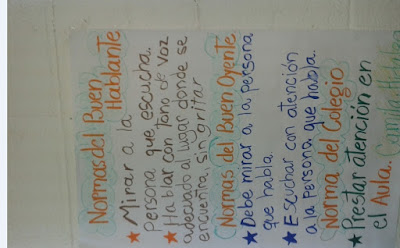 Normas del Buen
Hablante
★ Mirar a la
persona que escucha.
★ Hablar con Tono de Voz
adecuado al lugar donde se
encuentra, sin gritar
Normas del Buen Oyente
★ Debe mirar a la persona
que habla.
★ Escuchar con atención
a la persona que habla.
Norma del Colegio
★ Prestar atención en
el Aula.